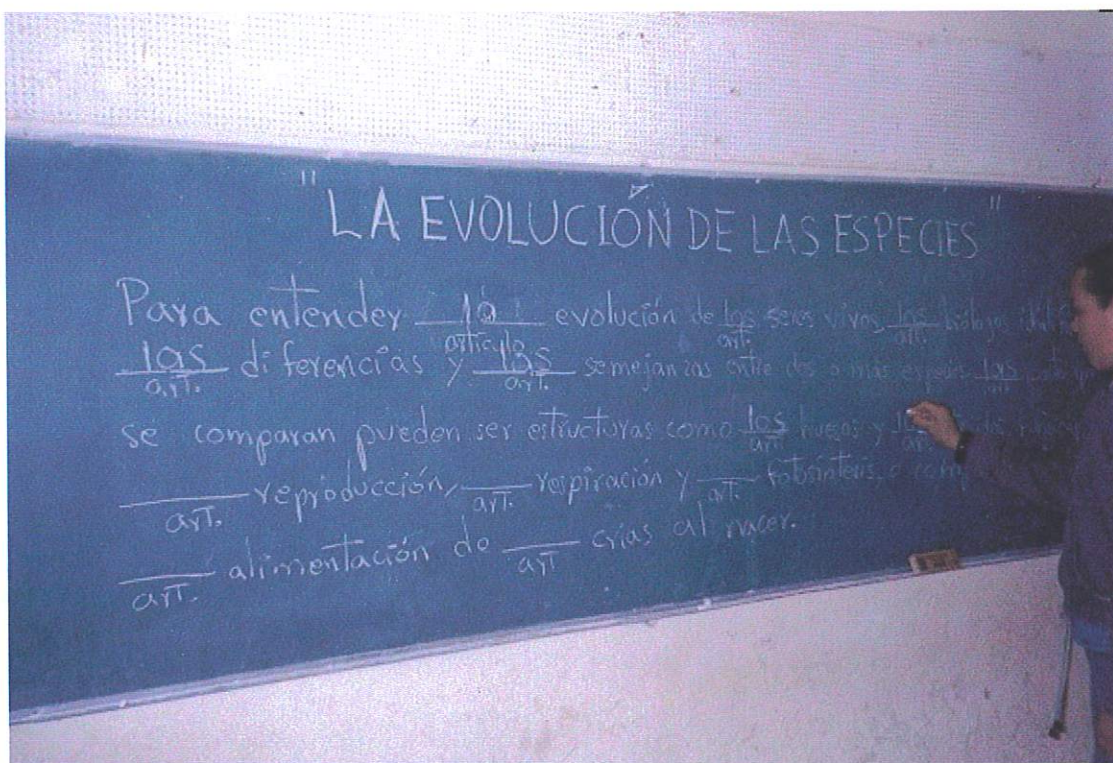 "LA EVOLUCIÓN DE LAS ESPECIES"
Para entender la evolución de los seres vivos, los biólogos
artículo art. art.
las diferencias y las semejanzas entre dos o más especies. Los
art. art.
se comparan pueden ser estructuras como los huesos y los
art. art.
____ reproducción, ____ respiración y ____ fotosíntesis, o
art. art. art.
____ alimentación de ____ crías al nacer.
art. art